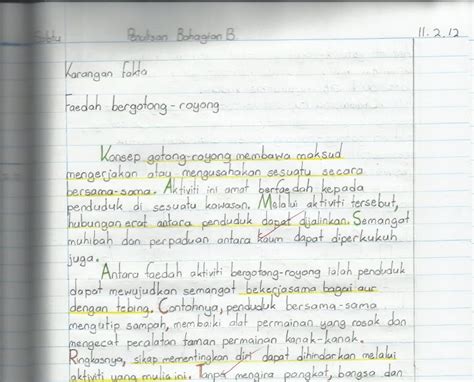 Sabtu Penulisan Bahagian B 11.2.12
Karangan fakta
Faedah bergotong-royong
Konsep gotong-royong membawa maksud
mengerjakan atau mengusahakan sesuatu secara
bersama-sama. Aktiviti ini amat berfaedah kepada
penduduk di sesuatu kawasan. Melalui aktiviti tersebut,
hubungan erat antara penduduk dapat dijalinkan. Semangat
muhibah dan perpaduan antara kaum dapat diperkukuh
juga.
Antara faedah aktiviti bergotong-royong ialah penduduk
dapat mewujudkan semangat bekerjasama bagai aur
dengan tebing. Contohnya, penduduk bersama-sama
mengutip sampah, membaiki alat permainan yang rosak dan
mengecat peralatan taman permainan kanak-kanak.
Ringkasnya, sikap mementingkan diri dapat dihindarkan melalui
aktiviti yang mulia ini. Tanpa mengira pangkat, bangsa dan